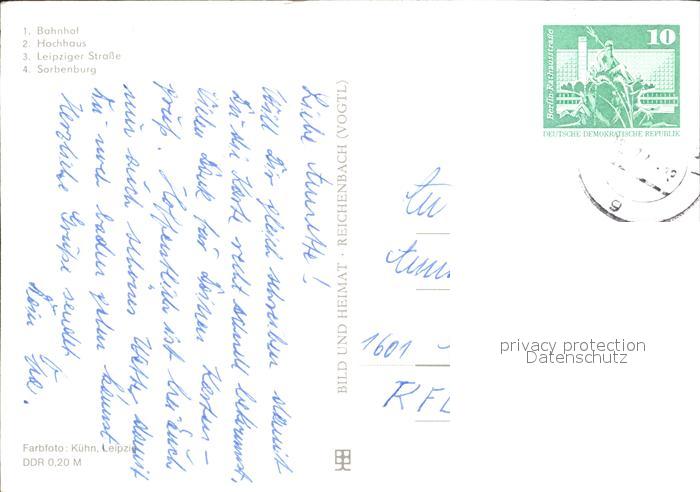 1. Bahnhof
2. Hochhaus
3. Leipziger Straße
4. Sorbenburg
Liebe Annette!
Will Dir gleich schreiben damit
Du die Karte recht schnell bekommst,
Vielen Dank für Deinen Karten-
gruß. Hoffentlich ist bei Euch
nun auch schönes Wetter damit
Du noch baden gehen kannst.
Herzliche Grüße sendet
Dein
Farbfoto: Kühn, Leipzig
DDR 0,20 M
BILD UND HEIMAT · REICHENBACH (VOGTL)
10
Berlin·Rathausstraße
DEUTSCHE DEMOKRATISCHE REPUBLIK
An
1601
privacy protection
Datenschutz